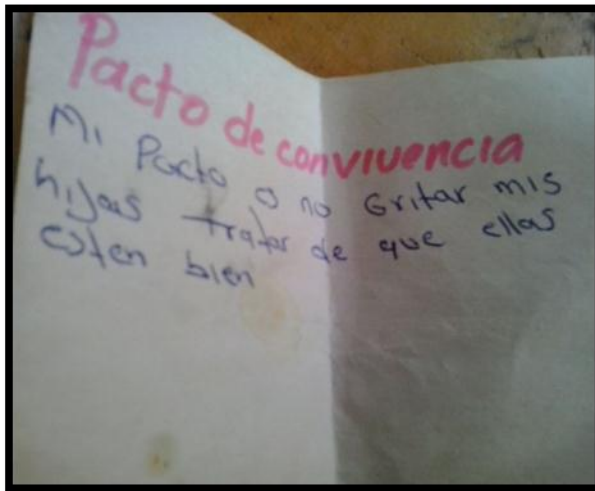 Pacto de convivencia
Mi Pacto o no Gritar mis
hijas tratar de que ellas
esten bien